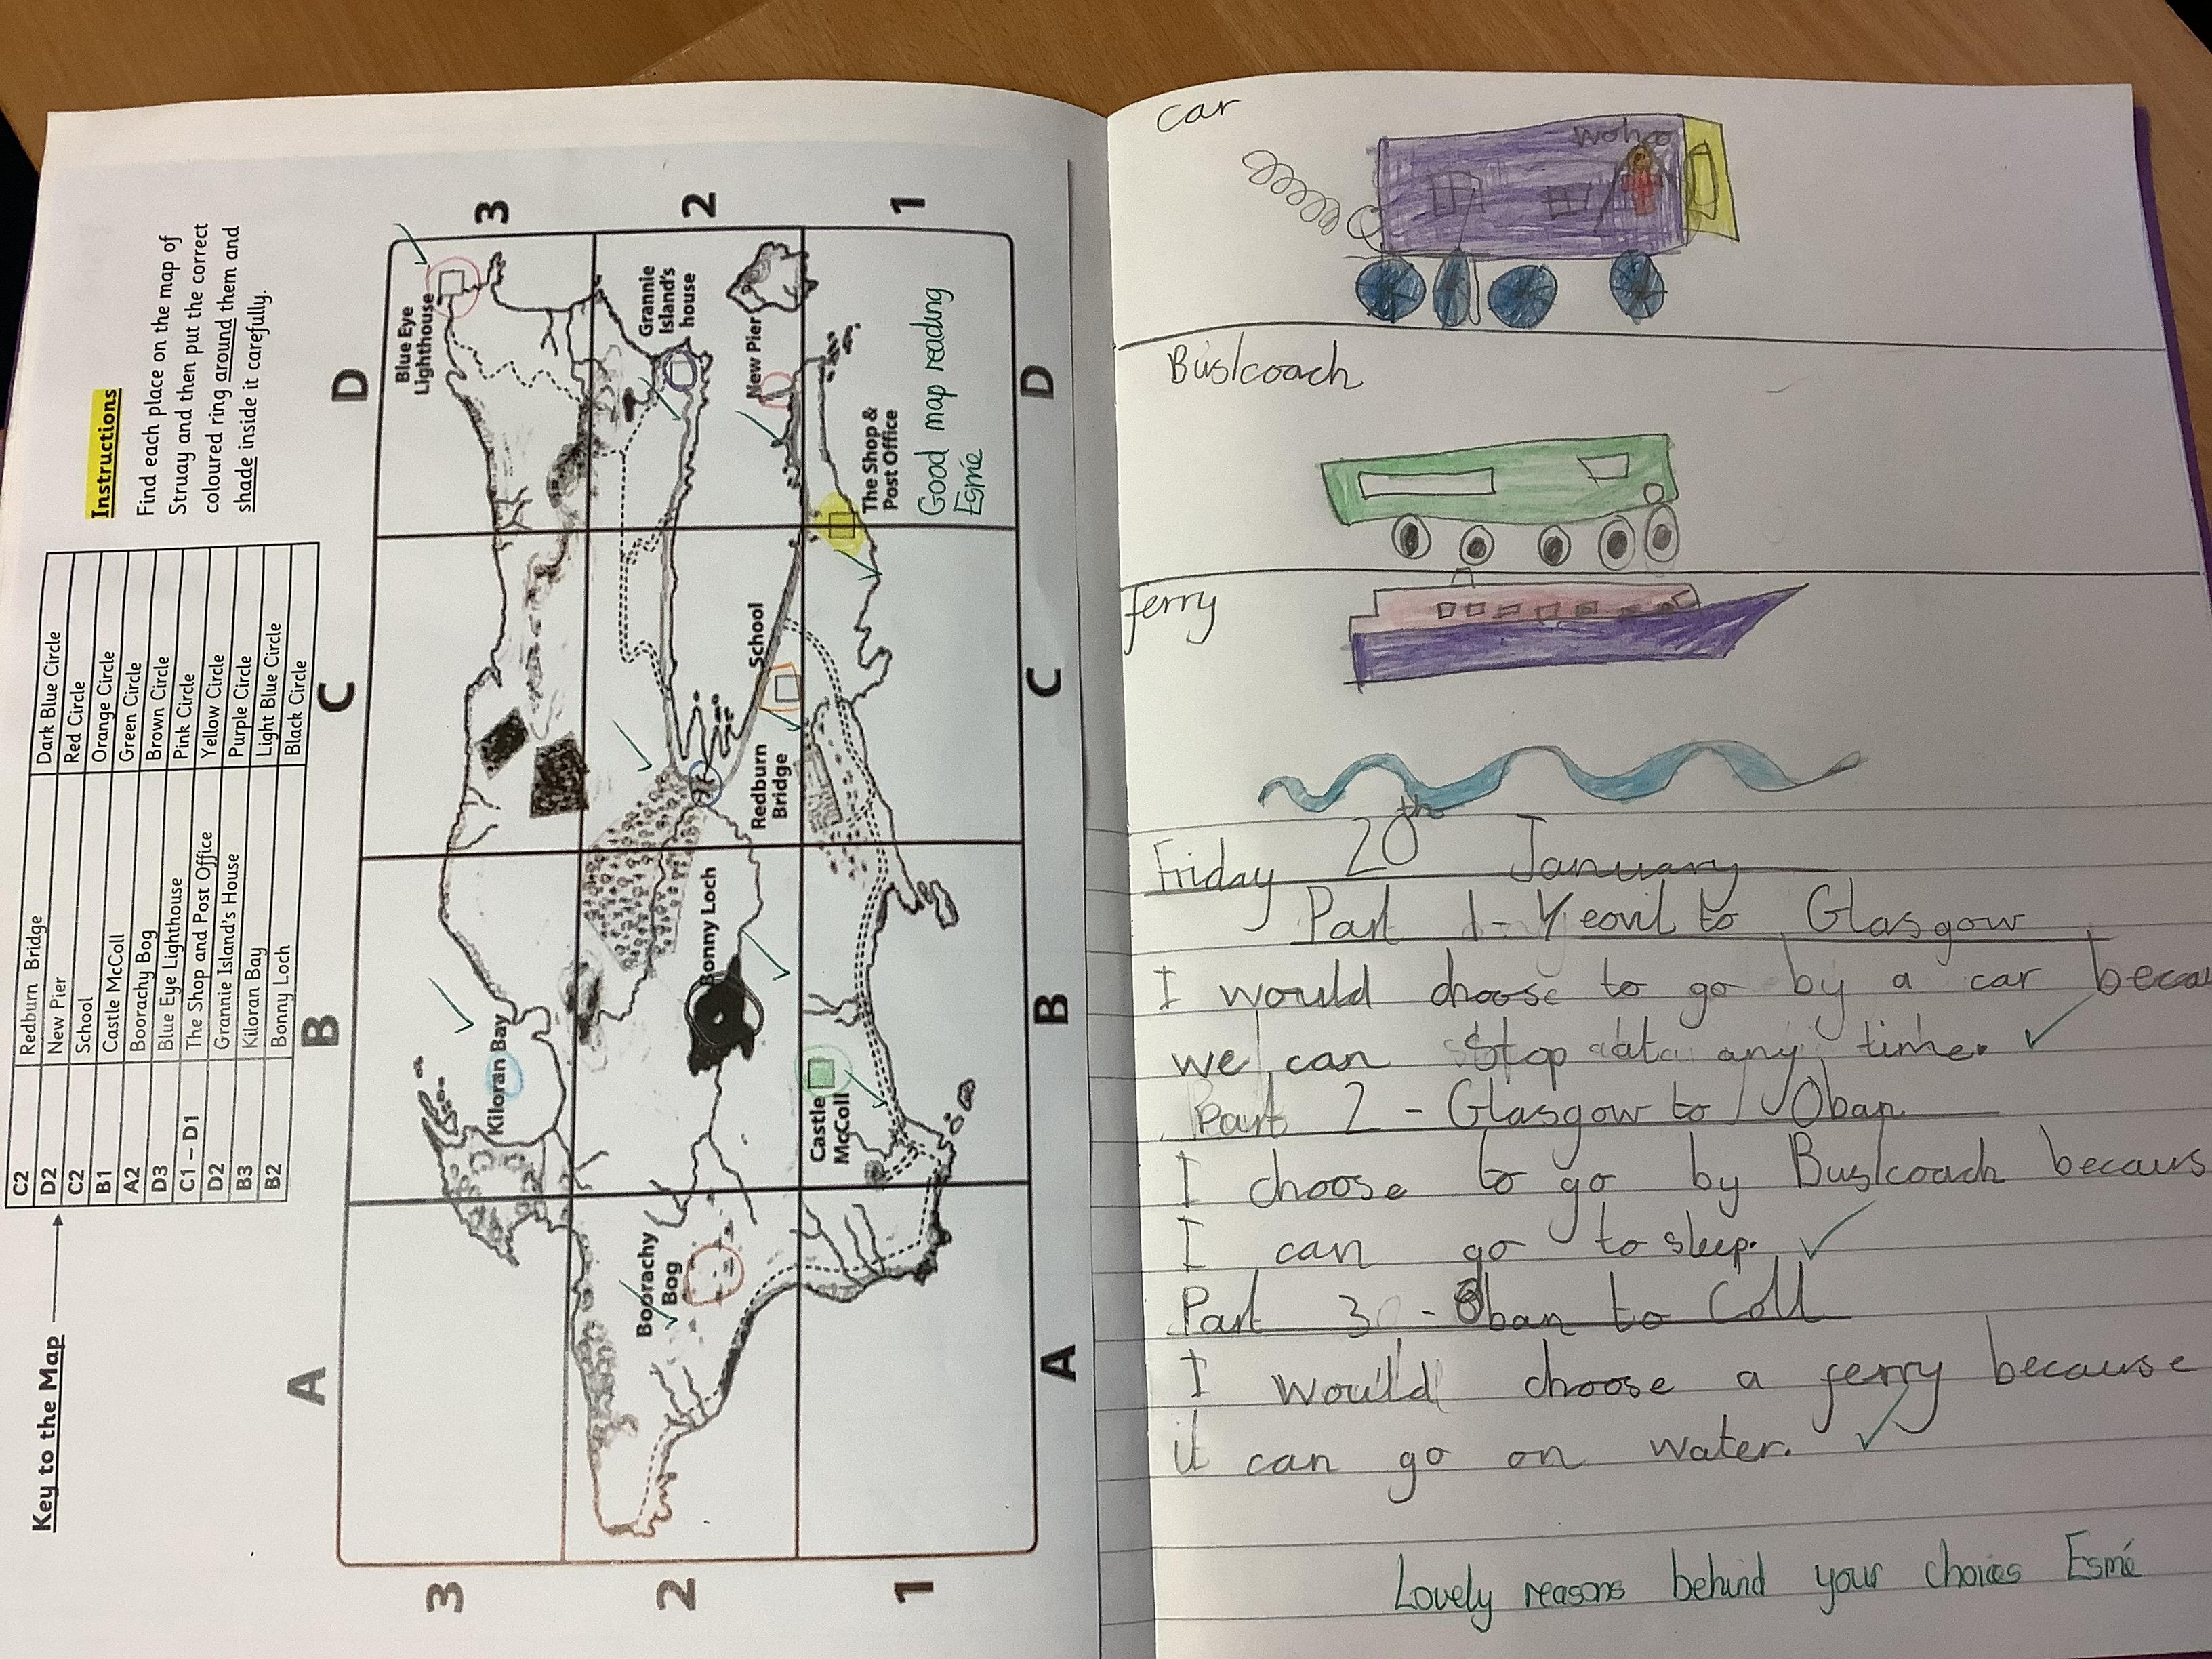 Key to the Map
C2 Redburn Bridge Dark Blue Circle
D2 New Pier Red Circle
C2 School Orange Circle
B1 Castle McColl Green Circle
A2 Boorachy Bog Brown Circle
D3 Blue Eye Lighthouse Pink Circle
C1 – D1 The Shop and Post Office Yellow Circle
D2 Grannie Island's House Purple Circle
B3 Kiloran Bay Light Blue Circle
B2 Bonny Loch Black Circle
Instructions
Find each place on the map of
Struay and then put the correct
coloured ring around them and
shade inside it carefully.
A B C D
3 3
Blue Eye
Lighthouse
Kiloran Bay
2 2
Grannie
Island's
house
Boorachy
Bog
Bonny Loch
New Pier
School
Redburn
Bridge
1 1
Castle
McColl
The Shop &
Post Office
Good map reading
Esmé
A B C D
car
wohoo
Bus/coach
ferry
Friday 20th January
Part 1 - Yeovil to Glasgow
I would choose to go by a car becau
we can stop at any time.
Part 2 - Glasgow to Oban
I choose to go by Bus/coach becaus
I can go to sleep.
Part 3 - Oban to Coll
I would choose a ferry because
it can go on water.
Lovely reasons behind your choices Esmé